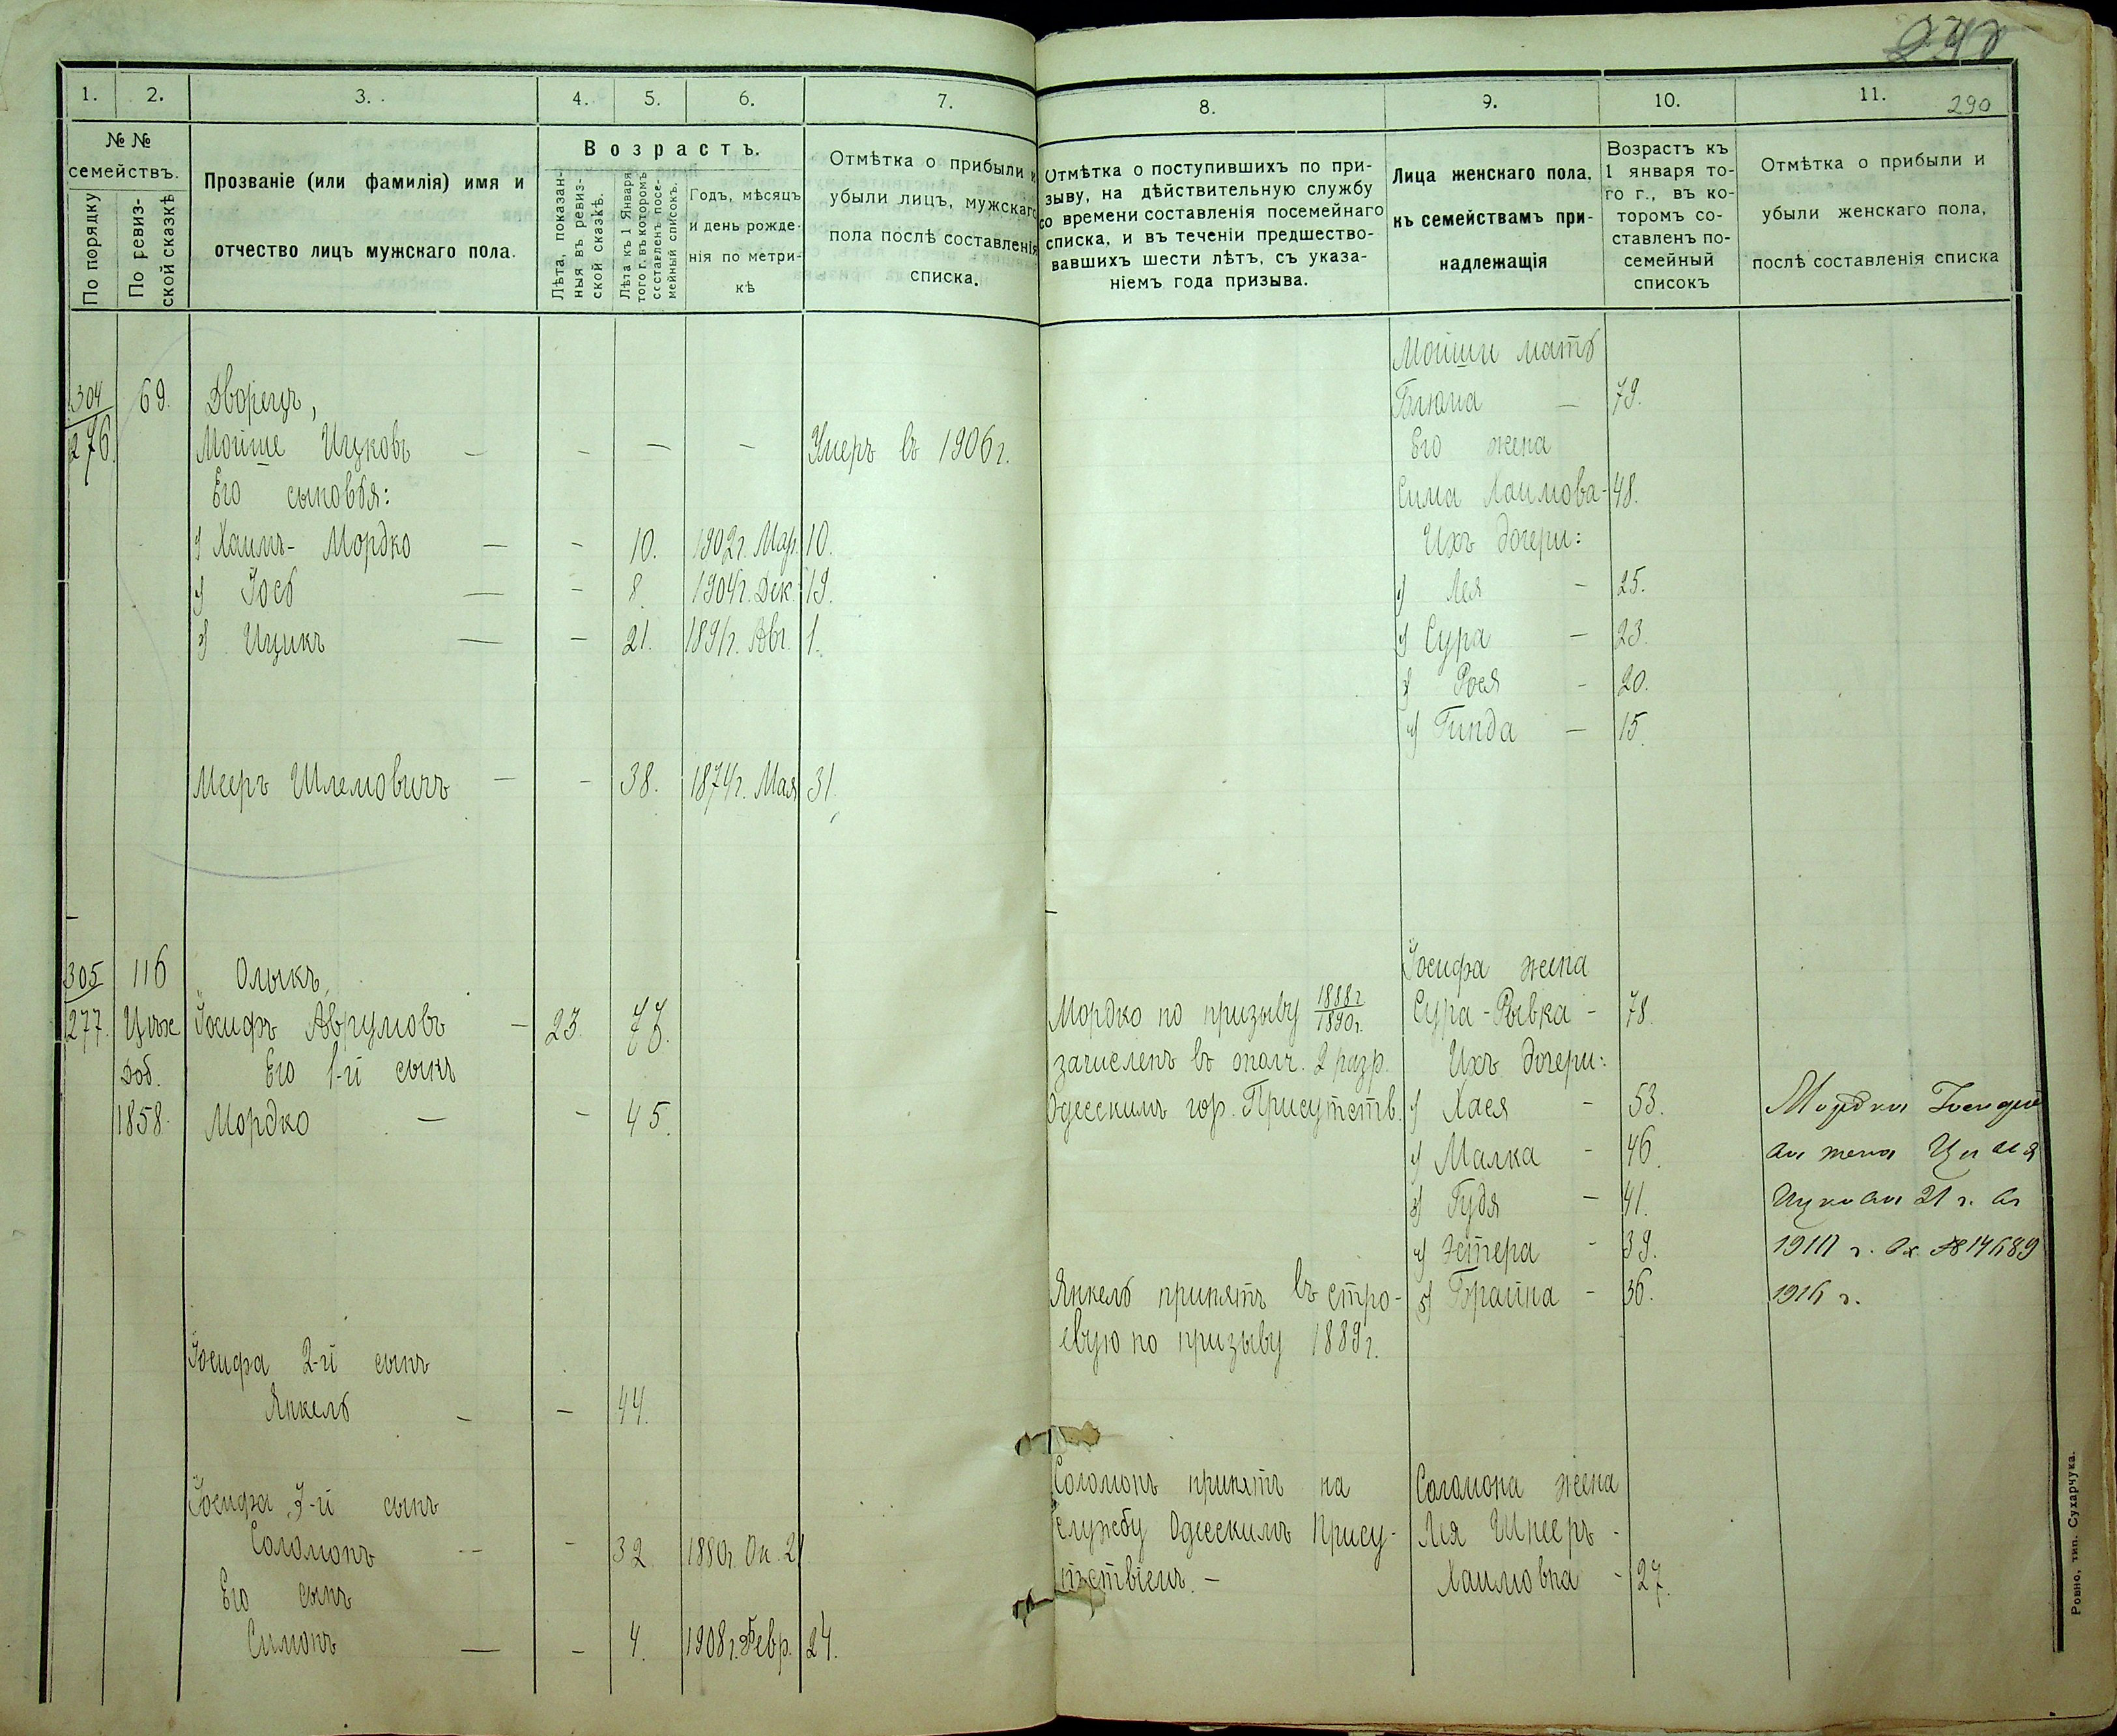 290
1. 2. 3. 4. 5. 6. 7.
№ № семействъ.
По порядку
По ревиз-
ской сказкѣ
Прозваніе (или фамилія) имя и
отчество лицъ мужскаго пола.
Возрастъ.
Лѣта, показан-
ныя въ ревиз-
ской сказкѣ.
Лѣта къ 1 Января
того г. въ которомъ
составленъ посе-
мейный списокъ.
Годъ, мѣсяцъ
и день рожде-
нія по метри-
кѣ
Отмѣтка о прибыли и
убыли лицъ, мужскаго
пола послѣ составленія
списка.
304 69. Дворецъ,
276. Мойше Ицковъ — - — - Умеръ въ 1906 г.
Его сыновья:
1) Хаимъ-Мордко — - 10. 1902 г. Мар. 10.
2) Іось — - 8. 1904 г. Дек. 19.
3) Ицикъ — - 21. 1891 г. Авг. 1.
Мееръ Шлемовичъ — - 38. 1874 г. Мая 31.
305 116 Олыкъ,
277. Іосифъ Аврумовъ - 23. 77
доб. Его 1-й сынъ
1858. Мордко — - 45.
Іосифа 2-й сынъ
Янкель - — 44.
Іосифа 3-й сынъ
Соломонъ -- - 32 1880 г. Ок. 21
Его сынъ
Симонъ — - 4. 1908 г. Февр. 24.
8. 9. 10. 11.
Отмѣтка о поступившихъ по при-
зыву, на дѣйствительную службу
со времени составленія посемейнаго
списка, и въ теченіи предшество-
вавшихъ шести лѣтъ, съ указа-
ніемъ года призыва.
Лица женскаго пола,
къ семействамъ при-
надлежащія
Возрастъ къ
1 января то-
го г., въ ко-
торомъ со-
ставленъ по-
семейный
списокъ
Отмѣтка о прибыли и
убыли женскаго пола,
послѣ составленія списка
Мойши мать
Блюма — 79.
Его жена
Сима Хаимова - 48.
Ихъ дочери:
1) Лея - 25.
2) Сура - 23.
3) Рося - 20.
4) Гинда — 15.
Іосифа жена
Мордко по призыву 1888 г. Сура-Рывка - 78.
1890 г.
зачисленъ въ ополч. 2 разр. Ихъ дочери:
Одесскимъ гор. Присутств. 1) Хася - 53. Мордки Іосифо
2) Малка - 46. ва жена
3) Гудя - 41. Ицкова 21 г.
4) Эстера - 39.
Янкель принятъ въ стро- 5) Брайна - 36.
евую по призыву 1889 г.
Соломонъ принятъ на Соломона жена
службу Одесскимъ Прису- Лея Шнееръ -
тствіемъ. - Хаимовна - 27.
Ровно, тип. Сухарчука.